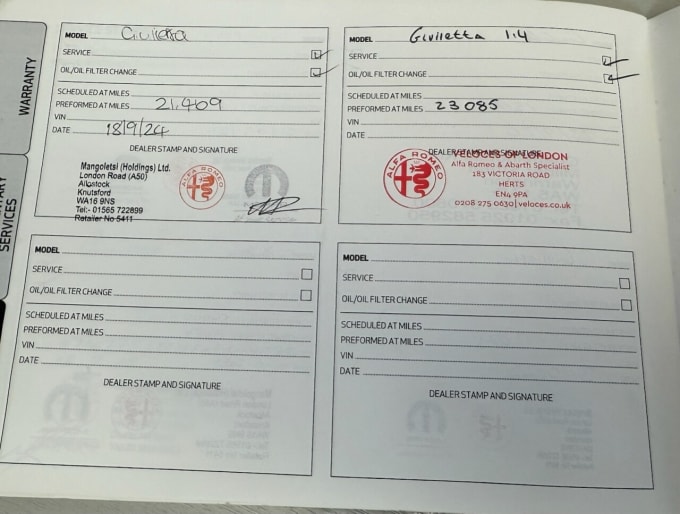 WARRANTY
SERVICES
MODEL Giulietta
SERVICE
OIL/OIL FILTER CHANGE
SCHEDULED AT MILES
PREFORMED AT MILES 21,409
VIN
DATE 18/9/24
DEALER STAMP AND SIGNATURE
Mangoletsi (Holdings) Ltd.
London Road (A50)
Allostock
Knutsford
WA16 9NS
Tel:- 01565 722899
Retailer No 5411
ALFA ROMEO
MODEL Giviletta 1.4
SERVICE
OIL/OIL FILTER CHANGE
SCHEDULED AT MILES
PREFORMED AT MILES 23085
VIN
DATE
DEALER STAMP AND SIGNATURE
ALFA ROMEO
VELOCES OF LONDON
Alfa Romeo & Abarth Specialist
183 VICTORIA ROAD
HERTS
EN4 9PA
0208 275 0630 | veloces.co.uk
MODEL
SERVICE
OIL/OIL FILTER CHANGE
SCHEDULED AT MILES
PREFORMED AT MILES
VIN
DATE
DEALER STAMP AND SIGNATURE
MODEL
SERVICE
OIL/OIL FILTER CHANGE
SCHEDULED AT MILES
PREFORMED AT MILES
VIN
DATE
DEALER STAMP AND SIGNATURE